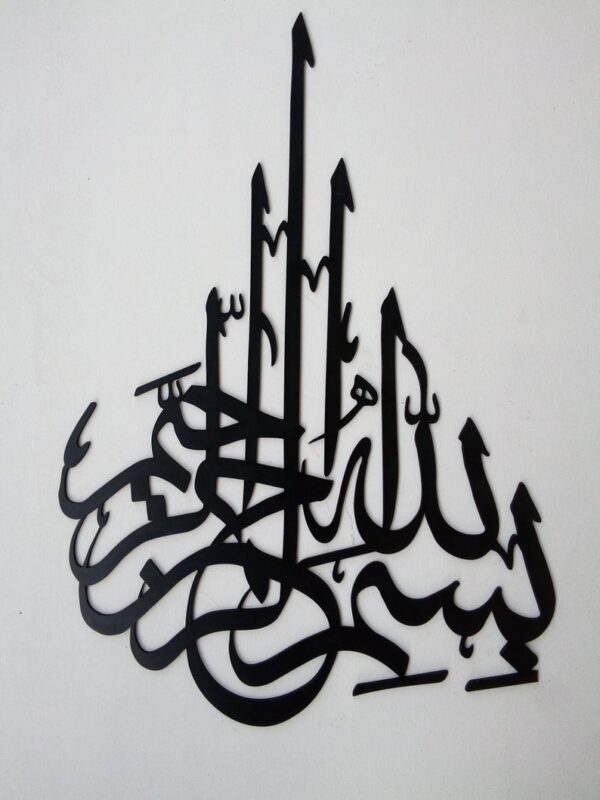 بِسْمِ اللّٰهُ الرّحمٰن الرّحيَم